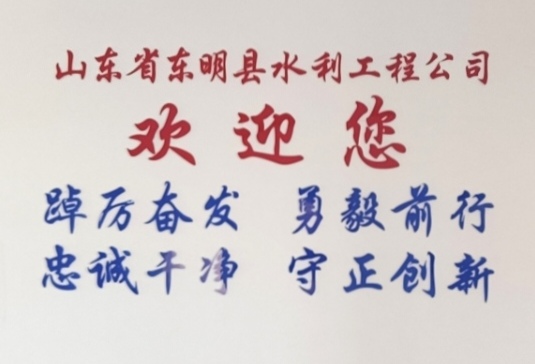 山东省东明县水利工程公司
欢迎您
踔厉奋发 勇毅前行
忠诚干净 守正创新